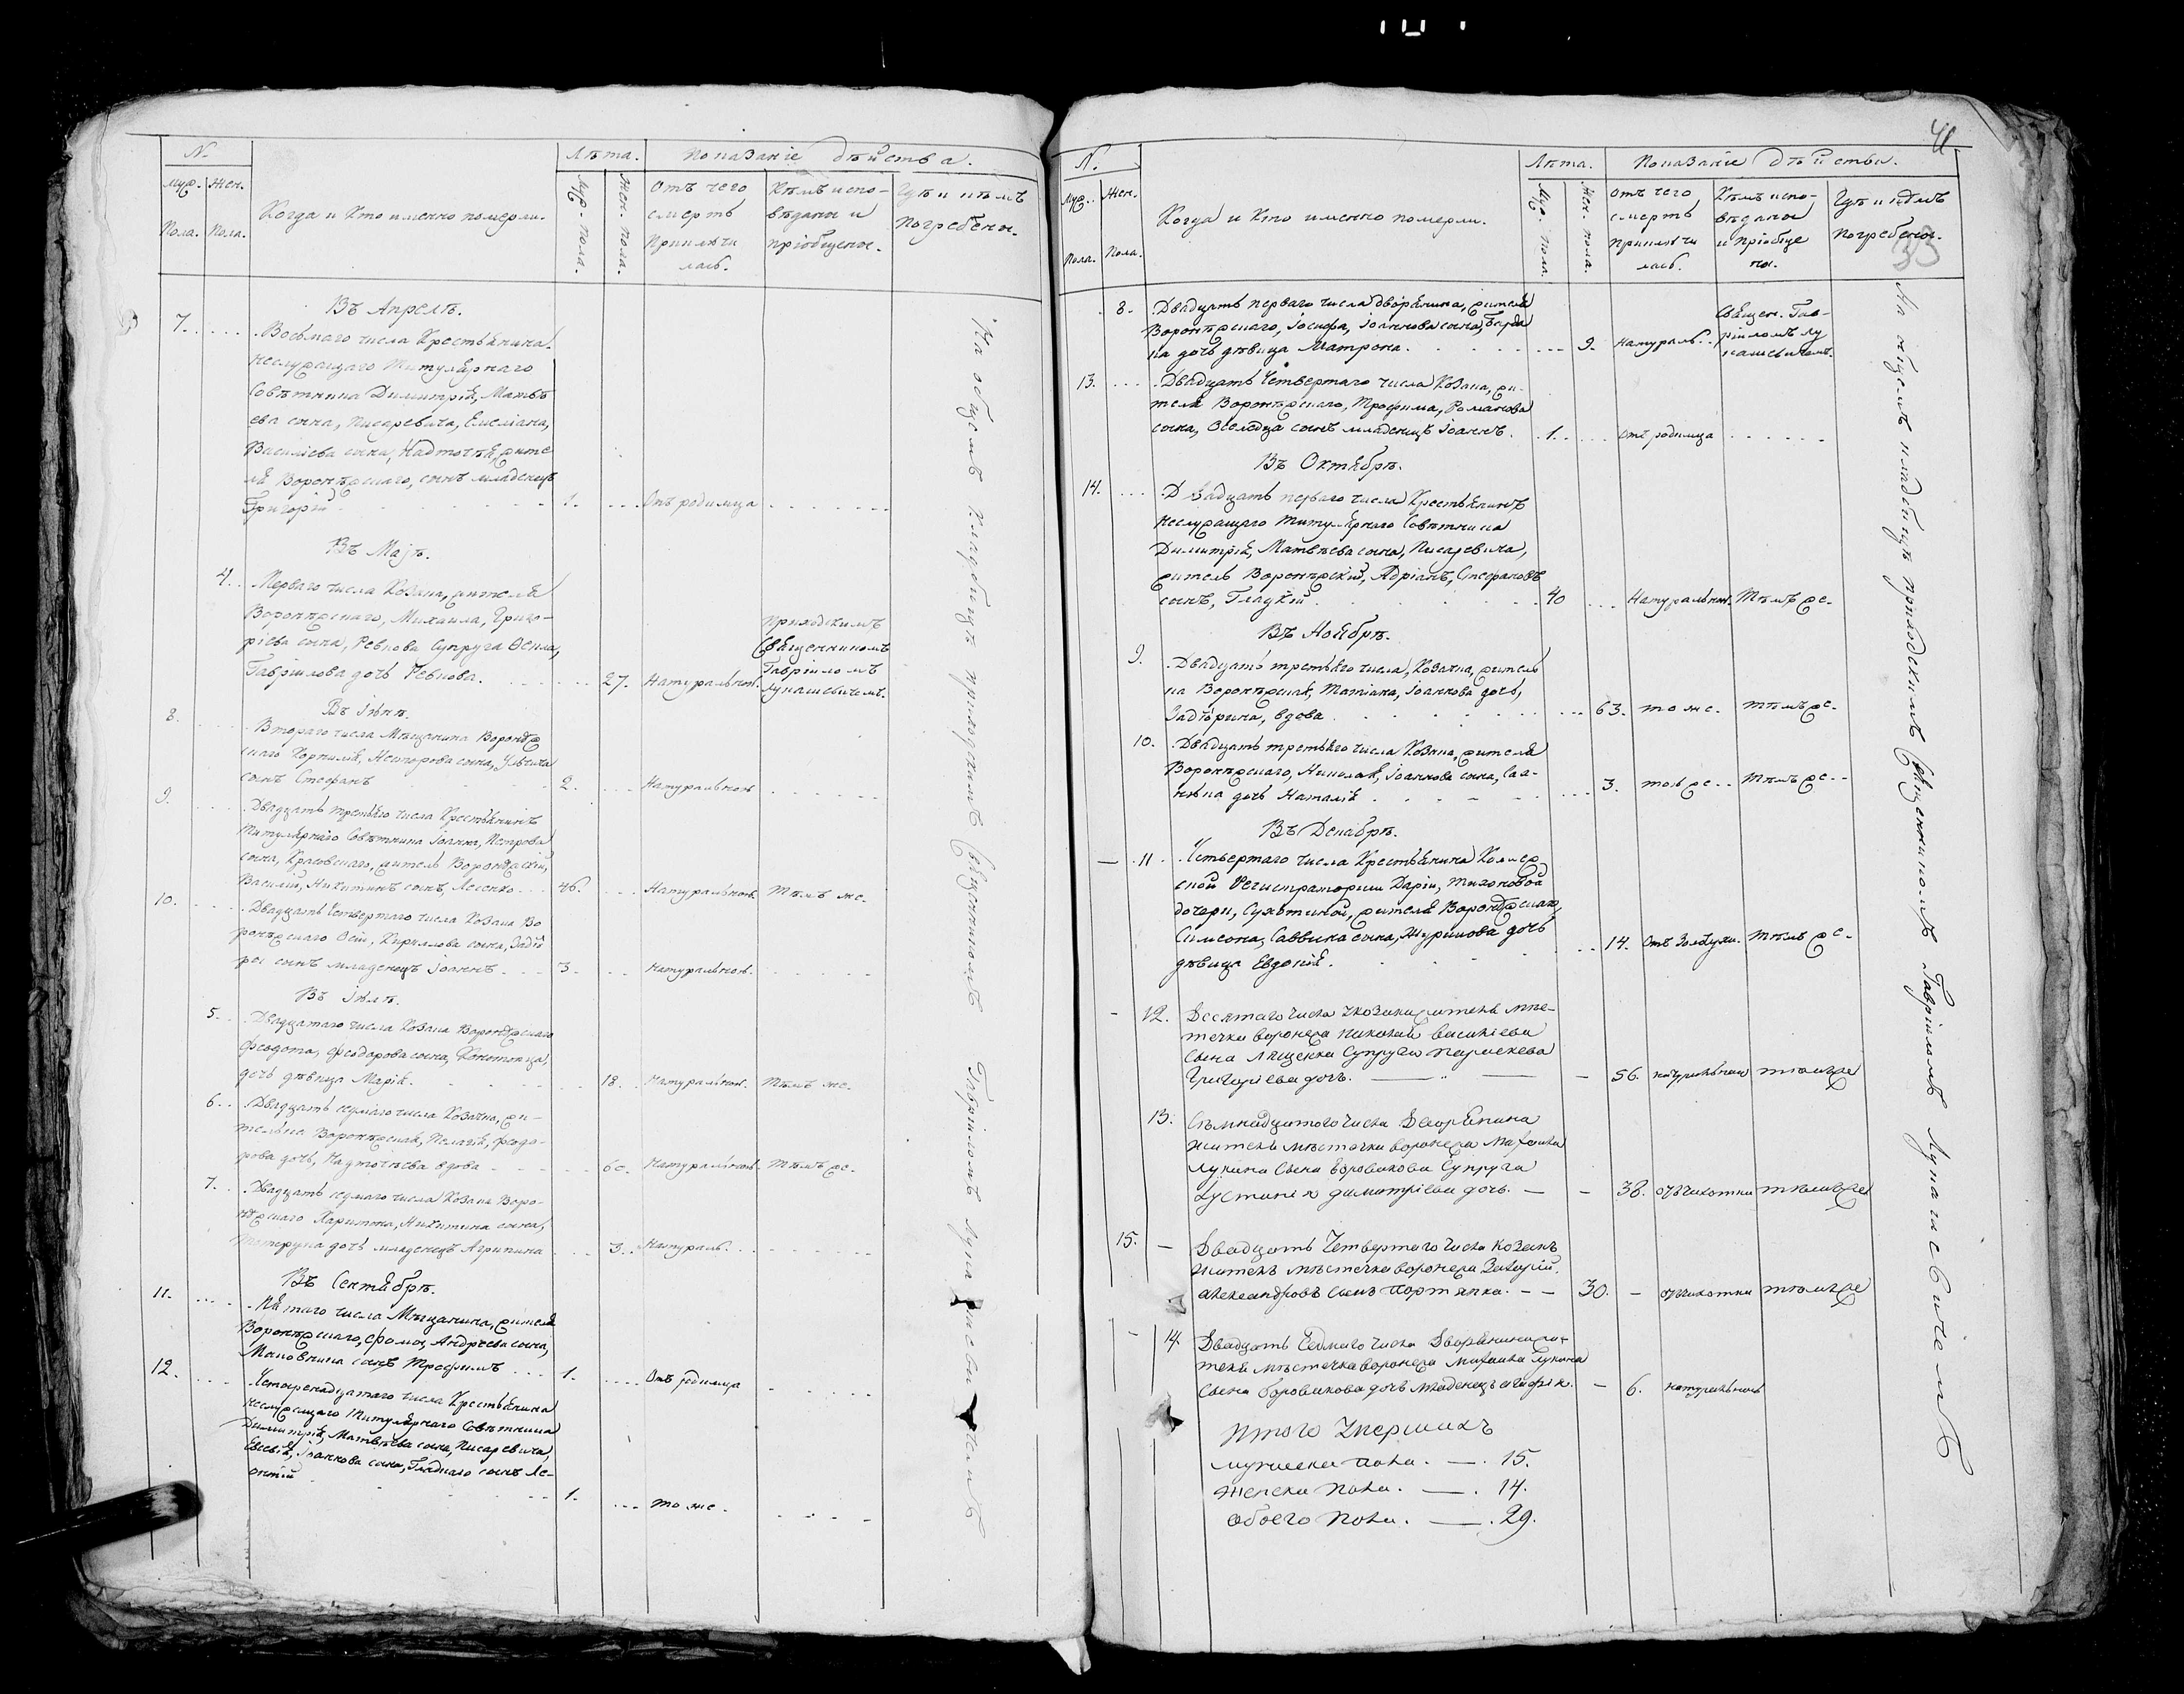 N.
Лѣта.
Показаніе дѣйства.
Муж. Жен.
Пола. Пола.
Когда и Кто именно померли.
Муж. пола.
Жен. пола.
Отъ чего
смерть
приключи
лась.
Кѣмъ испо-
вѣданы и
пріобщены.
Гдѣ и кѣмъ
Погребены.
Въ Апрелѣ.
7. Восьмаго числа Крестьянина
неслужащаго Титулярнаго
Совѣтника Димитрія, Матвѣ
ева сына, Писаревича, Емеліана,
Василіева сына, Надточѣя, жите
ля Воронѣжскаго, сынъ младенецъ
Григорій 1. Отъ родимца
Въ Маѣ.
4. Перваго числа Козака, жителя
Воронѣжскаго, Михаила, Григо-
ріева сына, Ревкова Супруга
Гавріилова дочь Ревкова. 27. Натуральною.
Приходскимъ
Священникомъ
Гавріиломъ
Лукашевичемъ.
Въ Іюнѣ.
8. Втораго числа Мѣщанина Воронѣж
скаго Корнилія, Несторова сына,
сынъ Стефанъ 2. Натуральною
9. Двадцать третьяго числа Крестьянинъ
Титулярнаго Совѣтника Іоанна, Петрова
сына, Красовскаго, житель Воронѣжскій,
Василій, Никитинъ сынъ, Лесенко 46. Натуральною. Тѣмъ же.
10. Двадцать Четвертаго числа Козака Во
ронѣжскаго Кириллова сына,
сынъ младенецъ Іоаннъ 3. Натуральною.
Въ Іюлѣ.
5. Двадцатаго числа Козака Воронѣжскаго
Феодота, Феодорова сына, Конотопца,
дочь дѣвица Марія. 18. Натуральною. Тѣмъ же.
6. Двадцать седмаго числа Козачка, жи-
тельница Воронѣжская, Пелагія, Феодо-
рова дочь, Надточѣева вдова 60. Натуральною. Тѣмъ же.
7. Двадцать седмаго числа Козака Воро-
нѣжскаго Харитона, Никитина сына,
дочь младенецъ Агрипина 3. Натураль.
Въ Сентябрѣ.
11. Пятаго числа Мѣщанина, жителя
Воронѣжскаго, Фомы, Андреева сына,
сынъ Трофимъ 1. Отъ родимца
12. Четыренадцатаго числа Крестьянина
неслужащаго Титулярнаго Совѣтника
Димитрія, Матвѣева сына, Писаревича,
Евсевія, Іоаннова сына, Гладкаго сынъ Ле-
онтій 1. тоже.
На общемъ кладбищѣ приходскимъ Священникомъ Гавріиломъ Лукашевичемъ
41
33
N.
Лѣта.
Показаніе дѣйства.
Муж. Жен.
Пола. Пола.
Когда и Кто именно померли.
Муж. пола.
Жен. пола.
Отъ чего
смерть
приключи
лась.
Кѣмъ испо-
вѣданы
и пріобще
ны.
Гдѣ и кѣмъ
Погребены.
8. Двадцать перваго числа дворянина, жителя
Воронѣжскаго, Іосифа, Іоаннова сына,
дочь дѣвица Матрона. 9. натураль.
Священ. Гав-
ріиломъ Лу
кашевичемъ.
13. Двадцать Четвертаго числа Козака, жи-
теля Воронѣжскаго, Трофима, Романова
сына, Оселедца сынъ младенецъ Іоаннъ. 1. отъ родимца
Въ Октябрѣ.
14. Двадцать перваго числа Крестьянинъ
неслужащаго Титулярнаго Совѣтника
Димитрія, Матвѣева сына, Писаревича,
житель Воронѣжскій, Адріанъ, Стефановъ
сынъ, Гладкій 40 Натуральною. Тѣмъ же.
Въ Ноябрѣ.
9. Двадцать третьяго числа, Козачка, жителъ
ка Воронѣжская, Татіана, Іоаннова дочь,
вдова 63. тоже. тѣмъ же.
10. Двадцать третьяго числа Козака, жителя
Воронѣжскаго, Николая, Іоаннова сына,
дочь Наталія 3. тоже. Тѣмъ же.
Въ Декабрѣ.
11. Четвертаго числа Крестьянина Коллеж
ской Регистраторши Даріи, Тихоновой
дочери, Сухотиной, жителя Воронѣжскаго,
Симеона, Саввина сына, дочь
дѣвица Евдокія. 14. Отъ Золотухи. Тѣмъ же.
12. Десятаго числа козака жителя мѣс-
течка воронежа Николая василіева
сына Лященка Супруга параскева
Григоріева дочь. 56. натуральною тѣмъже
13. Семнадцатого числа Дворянина
жителя мѣстечка воронежа Михаила
Лукина сына Боровикова Супруга
Іустинія димитріева дочь. 38. отъ чахотки тѣмъже
15. Двадцать Четвертаго числа козакъ
житель мѣстечка воронежа Захарій
александровъ сынъ Портянка. 30. отъ чахотки тѣмъже
14. Двадцать Седмаго числа Дворянина жи-
теля мѣстечка воронежа Михаила Лукина
сына боровикова дочь младенецъ агафія. 6. натуральною
Итого умершихъ
мужеска пола. 15.
женска пола. 14.
обоего пола. 29.
На общемъ кладбищѣ приходскимъ Священникомъ Гавріиломъ Лукашевичемъ